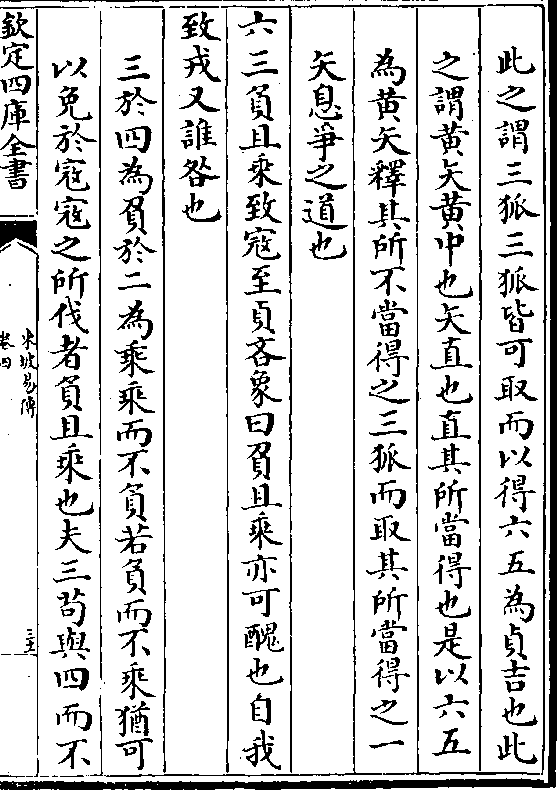 此之謂三狐三狐皆可取而以得六五為貞吉也此
之謂黄矢黄中也矢直也直其所當得也是以六五
為黄矢釋其所不當得之三狐而取其所當得之一
矢息爭之道也
六三負且乘致寇至貞吝象曰負且乘亦可醜也自我
致戎又誰咎也
三於四為負於二為乘乘而不負若負而不乘猶可
以免於寇寇之所伐者負且乘也夫三苟與四而不
欽定四庫全書
東坡易傳
卷四